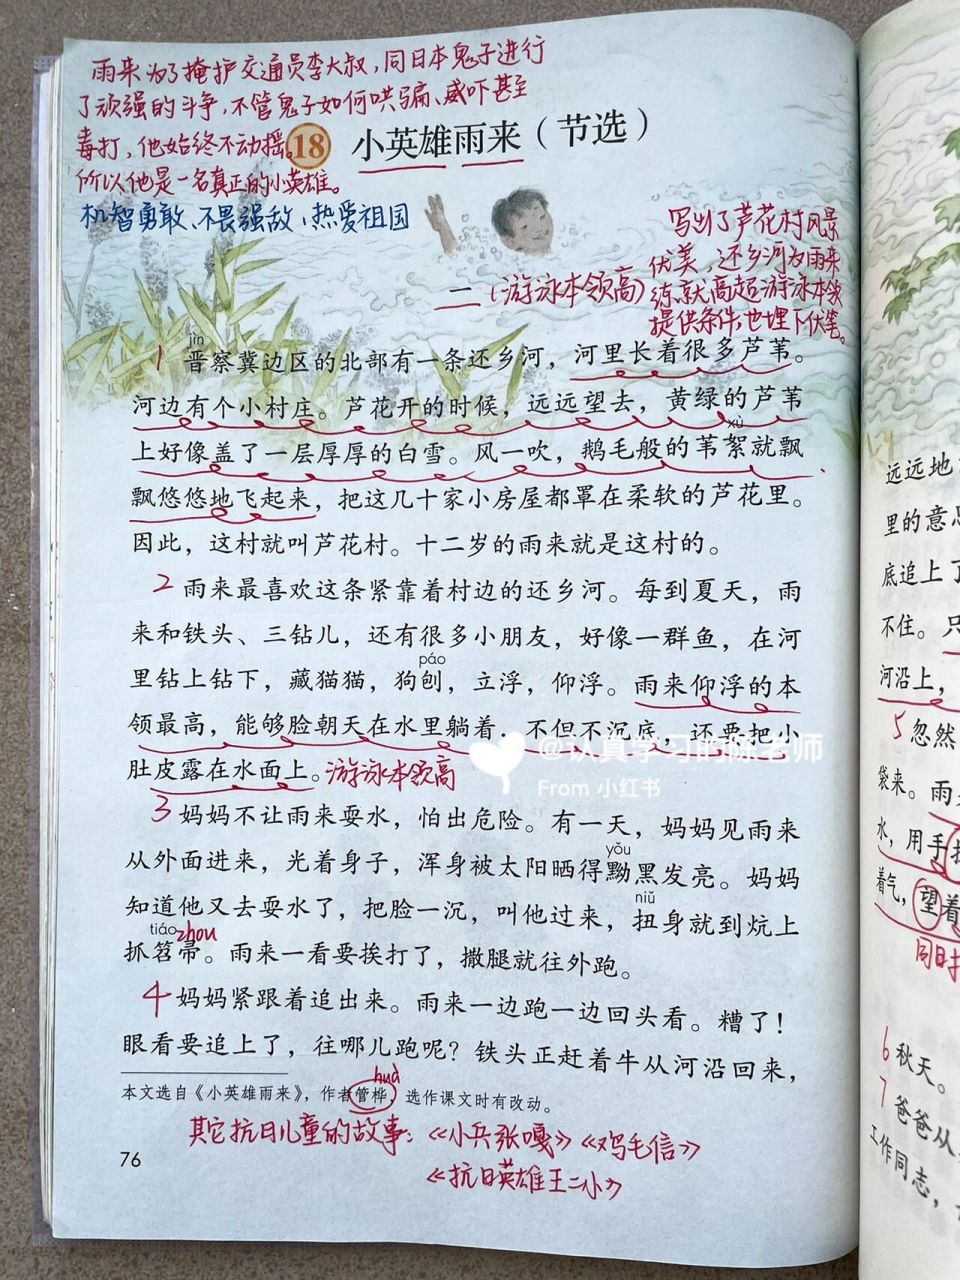 雨来为了掩护交通员李大叔，同日本鬼子进行
了顽强的斗争，不管鬼子如何哄骗、威吓甚至
毒打，他始终不动摇。
所以他是一名真正的小英雄。
机智勇敢、不畏强敌、热爱祖国
18 小英雄雨来（节选）
写出了芦花村风景
优美，还乡河为雨来
练就高超游泳本领
提供条件，也埋下伏笔。
一（游泳本领高）
jìn
1 晋察冀边区的北部有一条还乡河，河里长着很多芦苇。
河边有个小村庄。芦花开的时候，远远望去，黄绿的芦苇
xù
上好像盖了一层厚厚的白雪。风一吹，鹅毛般的苇絮就飘
飘悠悠地飞起来，把这几十家小房屋都罩在柔软的芦花里。
因此，这村就叫芦花村。十二岁的雨来就是这村的。
2 雨来最喜欢这条紧靠着村边的还乡河。每到夏天，雨
来和铁头、三钻儿，还有很多小朋友，好像一群鱼，在河
páo
里钻上钻下，藏猫猫，狗刨，立浮，仰浮。雨来仰浮的本
领最高，能够脸朝天在水里躺着，不但不沉底，还要把小
肚皮露在水面上。游泳本领高
@认真学习的陈老师
From 小红书
3 妈妈不让雨来耍水，怕出危险。有一天，妈妈见雨来
yǒu
从外面进来，光着身子，浑身被太阳晒得黝黑发亮。妈妈
niǔ
知道他又去耍水了，把脸一沉，叫他过来，扭身就到炕上
tiáo zhou
抓笤帚。雨来一看要挨打了，撒腿就往外跑。
4 妈妈紧跟着追出来。雨来一边跑一边回头看。糟了！
眼看要追上了，往哪儿跑呢？铁头正赶着牛从河沿回来，
huà
本文选自《小英雄雨来》，作者管桦，选作课文时有改动。
其它抗日儿童的故事：《小兵张嘎》《鸡毛信》
《抗日英雄王二小》
76
远远地
里的意思
底追上了
不住。只
河沿上，
5 忽然
袋来。雨
水，用手
着气，望着
6 秋天。
7 爸爸从
工作同志，